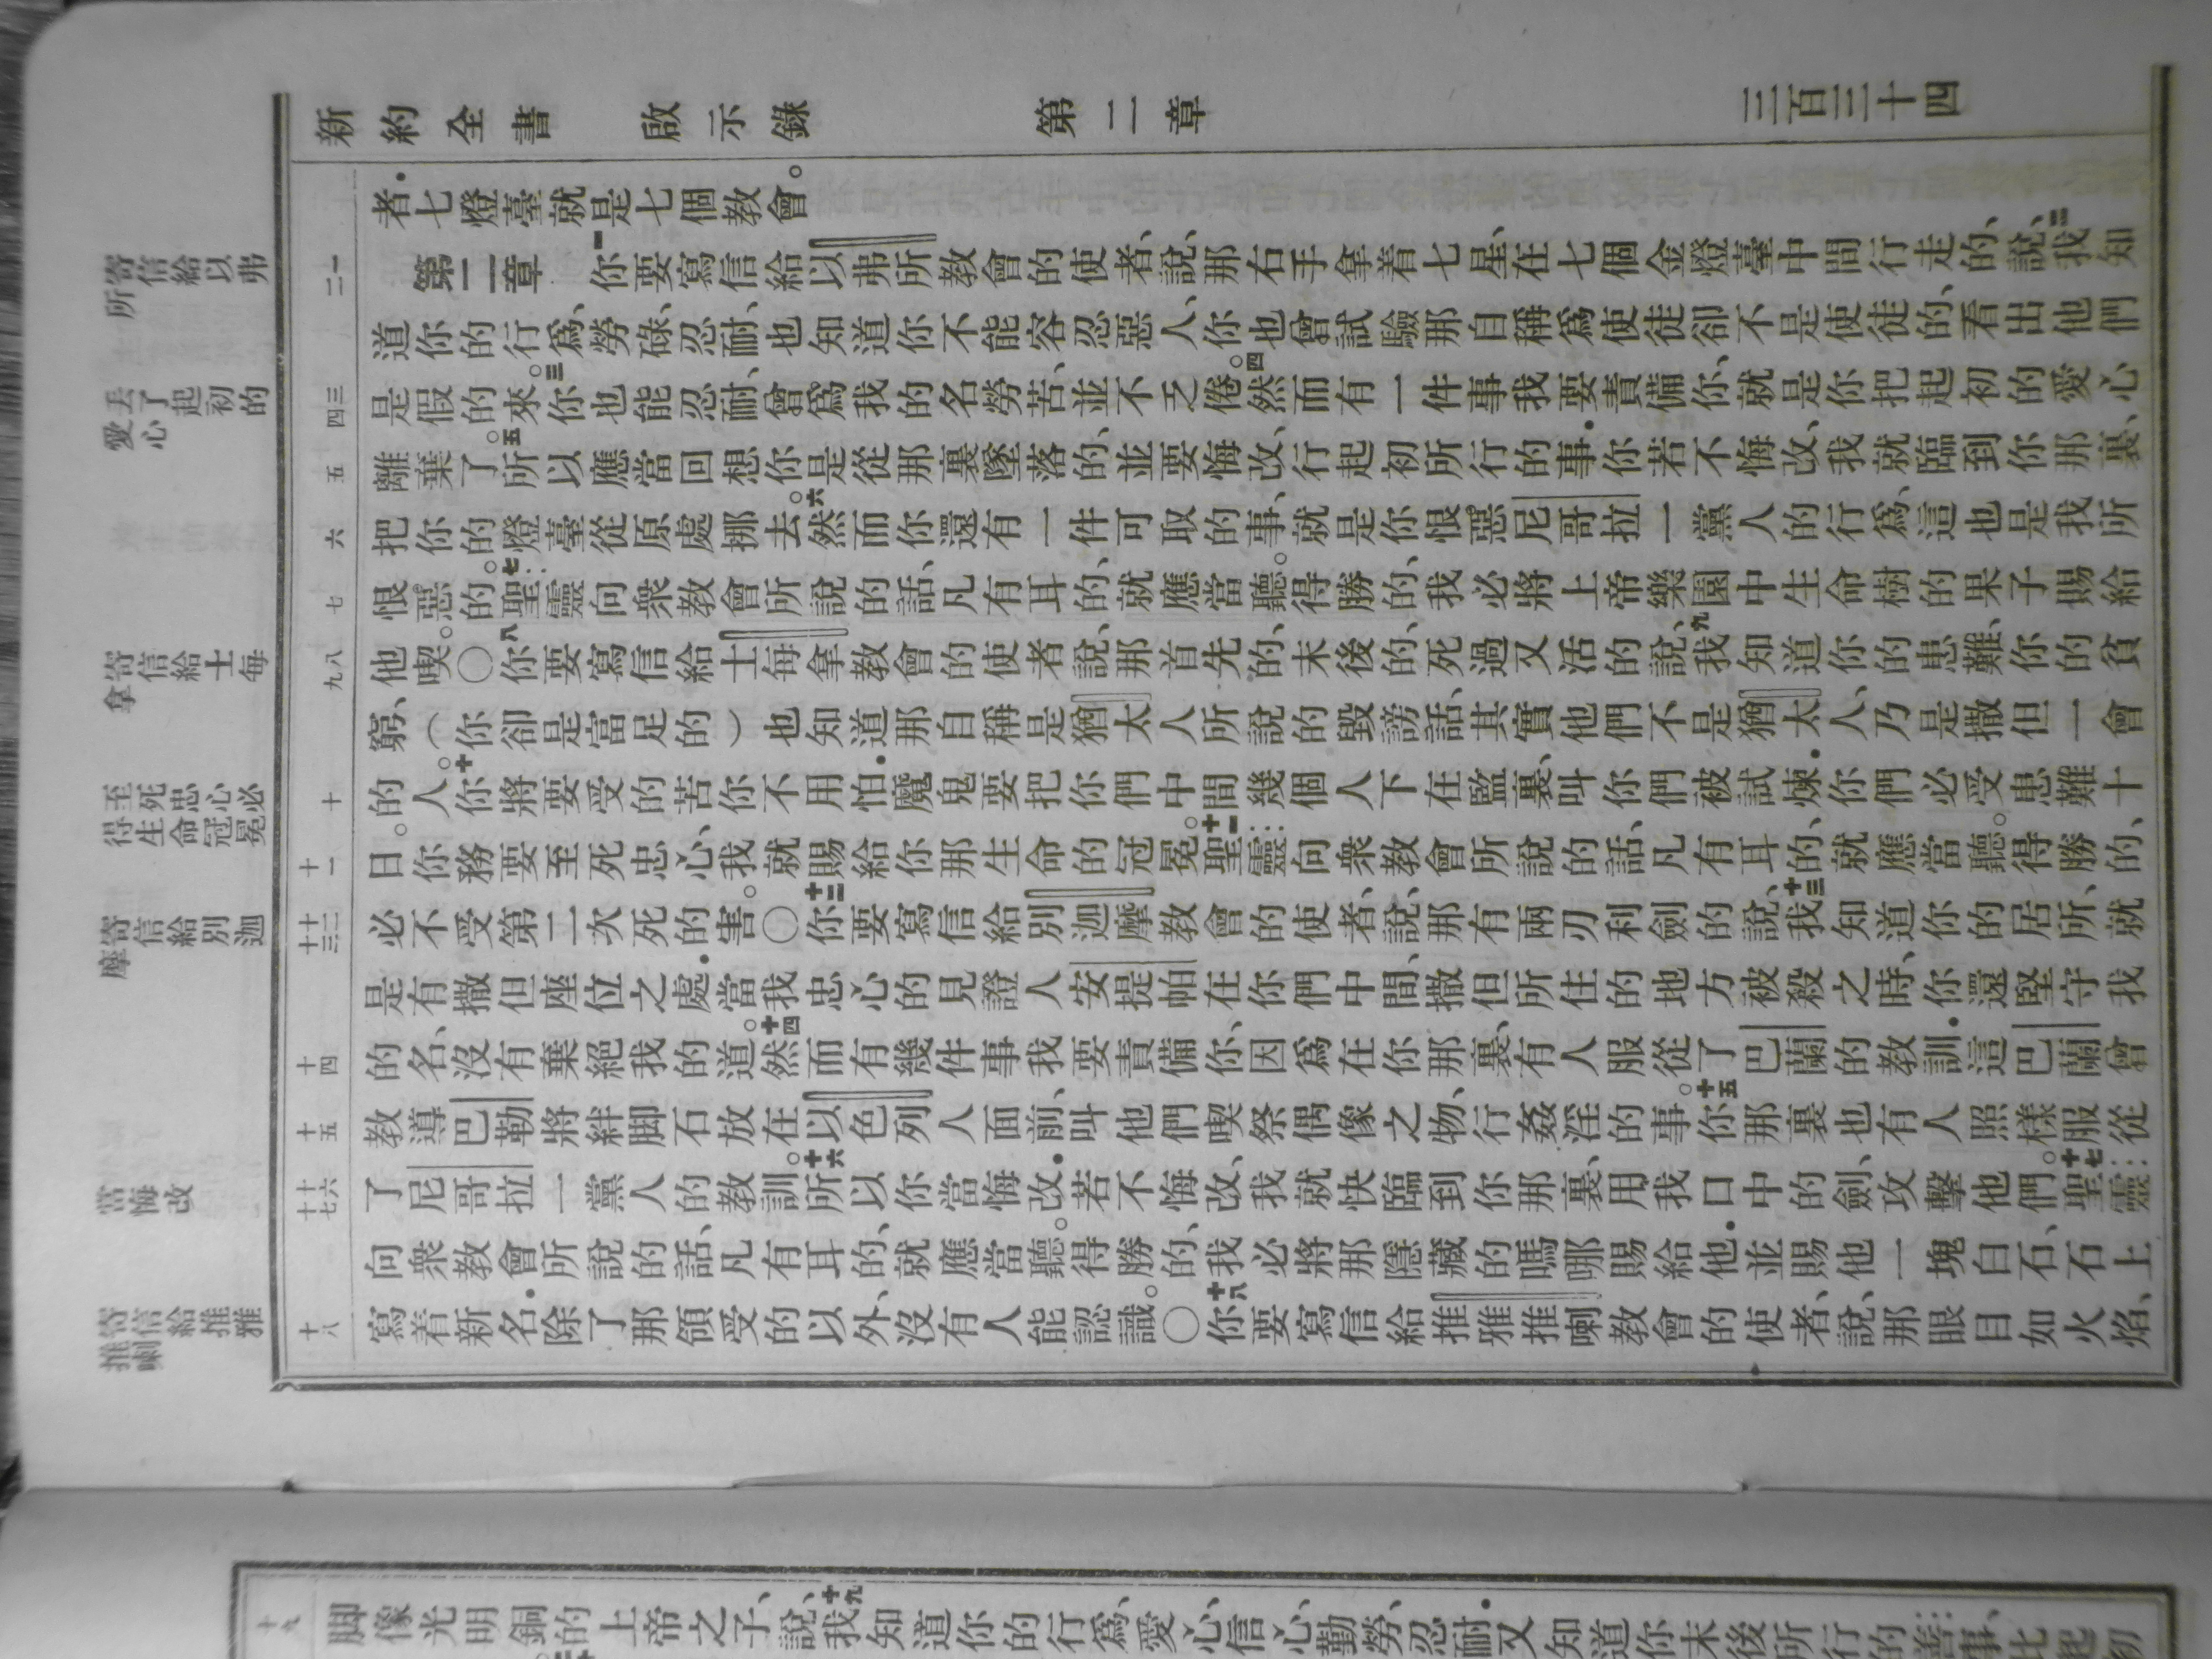 新約全書 啟示錄 第二章 三百三十四
者．七燈臺就是七個教會。
第二章 一你要寫信給以弗所教會的使者、說、那右手拿着七星、在七個金燈臺中間行走的、說、二我知
道你的行爲、勞碌、忍耐、也知道你不能容忍惡人、你也曾試驗那自稱爲使徒卻不是使徒的、看出他們
是假的來。三你也能忍耐、曾爲我的名勞苦、並不乏倦。四然而有一件事我要責備你、就是你把起初的愛心
離棄了。五所以應當回想你是從那裏墜落的、並要悔改、行起初所行的事．你若不悔改、我就臨到你那裏、
把你的燈臺從原處挪去。六然而你還有一件可取的事、就是你恨惡尼哥拉一黨人的行爲、這也是我所
恨惡的。七聖靈向衆教會所說的話、凡有耳的、就應當聽。得勝的、我必將上帝樂園中生命樹的果子賜給
他喫。〇八你要寫信給士每拿教會的使者、說、那首先的、末後的、死過又活的說、九我知道你的患難、你的貧
窮、（你卻是富足的）也知道那自稱是猶太人所說的毀謗話、其實他們不是猶太人、乃是撒但一會
的人。十你將要受的苦你不用怕．魔鬼要把你們中間幾個人下在監裏、叫你們被試煉．你們必受患難十
日。你務要至死忠心、我就賜給你那生命的冠冕。十一聖靈向衆教會所說的話、凡有耳的、就應當聽。得勝的、
必不受第二次死的害。〇十二你要寫信給別迦摩教會的使者、說、那有兩刃利劍的說、十三我知道你的居所、就
是有撒但座位之處．當我忠心的見證人安提帕在你們中間、撒但所住的地方被殺之時、你還堅守我
的名、沒有棄絕我的道。十四然而有幾件事我要責備你、因爲在你那裏、有人服從了巴蘭的教訓．這巴蘭曾
教導巴勒將絆脚石放在以色列人面前、叫他們喫祭偶像之物、行姦淫的事。十五你那裏也有人照樣服從
了尼哥拉一黨人的教訓。十六所以你當悔改．若不悔改、我就快臨到你那裏、用我口中的劍、攻擊他們。十七聖靈
向衆教會所說的話、凡有耳的、就應當聽。得勝的、我必將那隱藏的嗎哪賜給他．並賜他一塊白石、石上
寫着新名．除了那領受的以外、沒有人能認識。〇十八你要寫信給推雅推喇教會的使者、說、那眼目如火焰、
寄信給以弗
所
丟了起初的
愛心
寄信給士每
拿
至死忠心必
得生命冠冕
寄信給別迦
摩
當悔改
寄信給推雅
推喇
一
二
三
四
五
六
七
八
九
十
十一
十二
十三
十四
十五
十六
十七
十八
十九
脚像光明銅的上帝之子、說、十九我知道你的行爲、愛心、信心、勤勞、忍耐．又知道你末後所行的善事、比起初